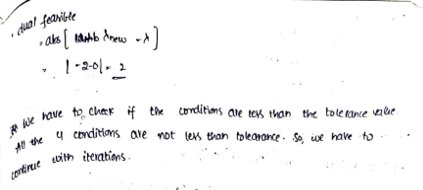 . dual feasible
= abs [ λnew - λ ]
= | -2-0| = 2
* We have to check if the conditions are less than the tolerance value
All the 4 conditions are not less than tolearance. So, we have to
continue with iterations.